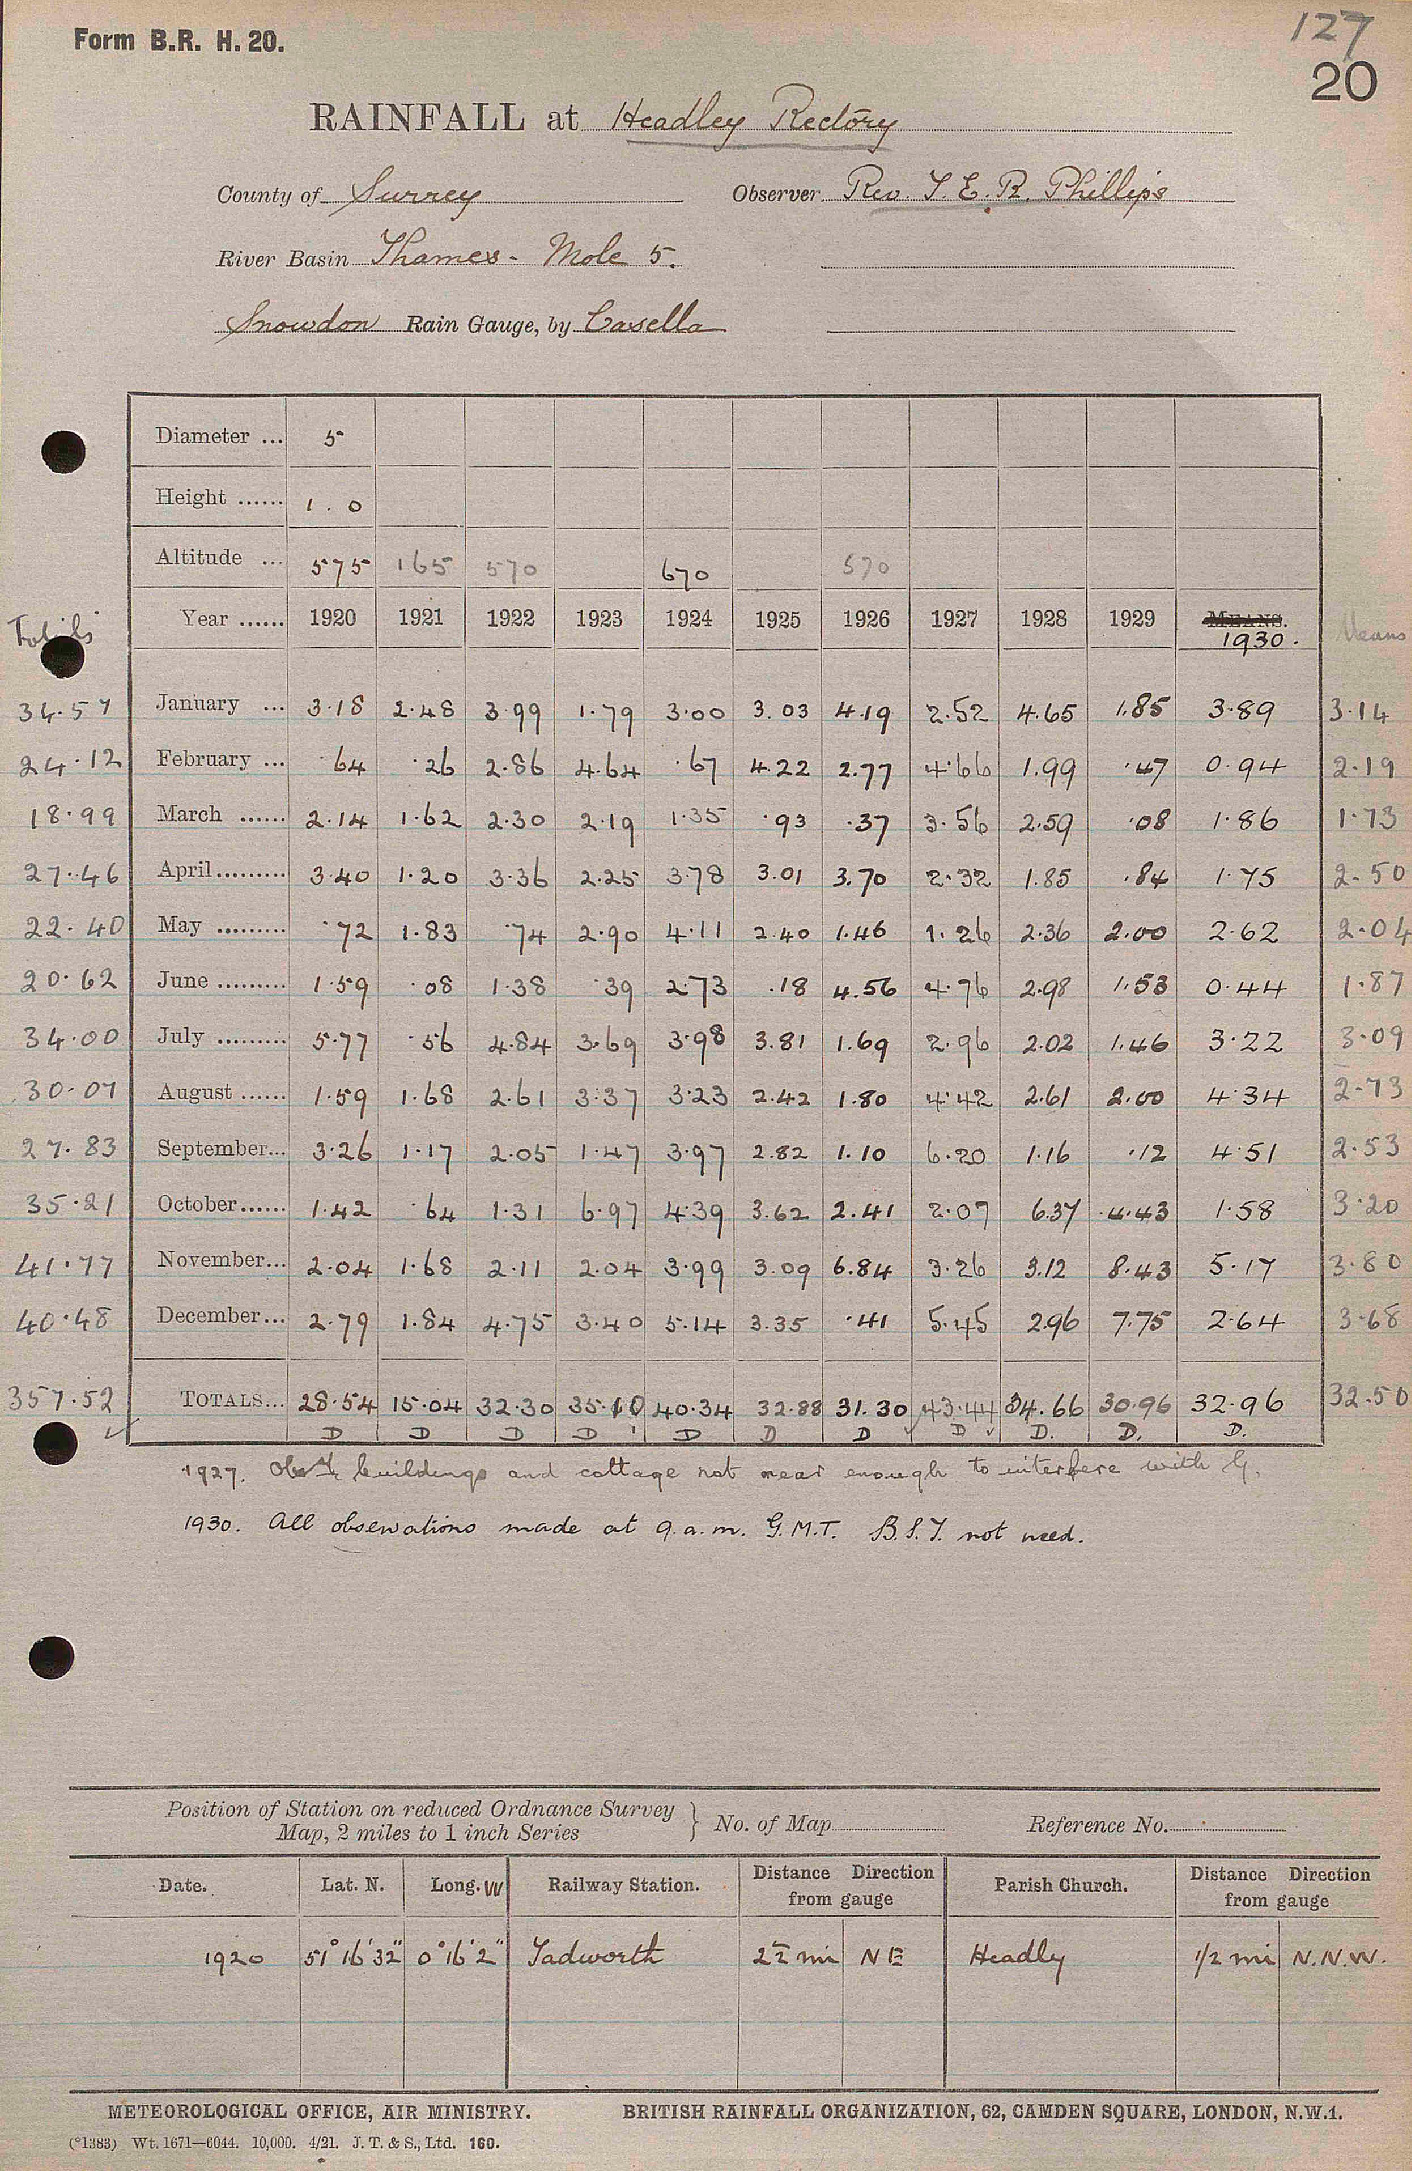 Form B.R. H. 20.
127
20
RAINFALL at Headley Rectory
County of Surrey Observer Rev. T. E. R. Phillips
River Basin Thames - Mole 5.
Snowdon Rain Gauge, by Casella
Diameter ... 5
Height ...... 1 . 0
Altitude ... 575 165 570 670 570
Totals Year ...... 1920 1921 1922 1923 1924 1925 1926 1927 1928 1929 MEANS. 1930. Means
34.57 January ... 3.18 2.48 3.99 1.79 3.00 3.03 4.19 2.52 4.65 1.85 3.89 3.14
24.12 February ... .64 .26 2.86 4.64 .67 4.22 2.77 4.66 1.99 .47 0.94 2.19
18.99 March ...... 2.14 1.62 2.30 2.19 1.35 .93 .37 3.56 2.59 .08 1.86 1.73
27.46 April ......... 3.40 1.20 3.36 2.25 3.78 3.01 3.70 2.32 1.85 .84 1.75 2.50
22.40 May ......... .72 1.83 .74 2.90 4.11 2.40 1.46 1.26 2.36 2.00 2.62 2.04
20.62 June ......... 1.59 .08 1.38 .39 2.73 .18 4.56 4.76 2.98 1.53 0.44 1.87
34.00 July ......... 5.77 .56 4.84 3.69 3.98 3.81 1.69 2.96 2.02 1.46 3.22 3.09
30.07 August ...... 1.59 1.68 2.61 3.37 3.23 2.42 1.80 4.42 2.61 2.00 4.34 2.73
27.83 September... 3.26 1.17 2.05 1.47 3.97 2.82 1.10 6.20 1.16 .12 4.51 2.53
35.21 October...... 1.42 .64 1.31 6.97 4.39 3.62 2.41 2.07 6.37 4.43 1.58 3.20
41.77 November... 2.04 1.68 2.11 2.04 3.99 3.09 6.84 3.26 3.12 8.43 5.17 3.80
40.48 December... 2.79 1.84 4.75 3.40 5.14 3.35 .41 5.45 2.96 7.75 2.64 3.68
357.52 TOTALS... 28.54 15.04 32.30 35.10 40.34 32.88 31.30 43.44 34.66 30.96 32.96 32.50
D D D D D D D D D. D. D.
1927. buildings and cottage not near enough to interfere with G.
1930. All observations made at 9 a.m. G.M.T. B.S.T. not used.
Position of Station on reduced Ordnance Survey
Map, 2 miles to 1 inch Series } No. of Map Reference No.
Date. Lat. N. Long. W Railway Station. Distance Direction from gauge Parish Church. Distance Direction from gauge
1920 51° 16' 32" 0° 16' 2" Tadworth 2½ mi NE Headly 1/2 mi N.N.W.
METEOROLOGICAL OFFICE, AIR MINISTRY. BRITISH RAINFALL ORGANIZATION, 62, CAMDEN SQUARE, LONDON, N.W.1.
(*1383) Wt. 1671—6044. 10,000. 4/21. J. T. & S., Ltd. 160.